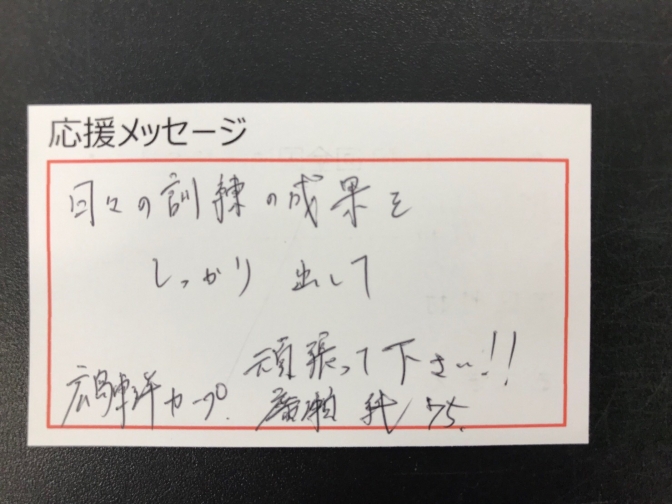 応援メッセージ
日々の訓練の成果を
しっかり 出して
頑張って下さい!!
広島東洋カープ. 廣瀬 純 75.